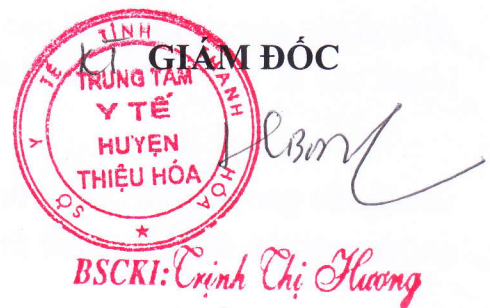 KT GIÁM ĐỐC
SỞ Y TẾ TỈNH THANH HÓA
TRUNG TÂM
Y TẾ
HUYỆN
THIỆU HÓA
BSCKI: Trịnh Thị Hương